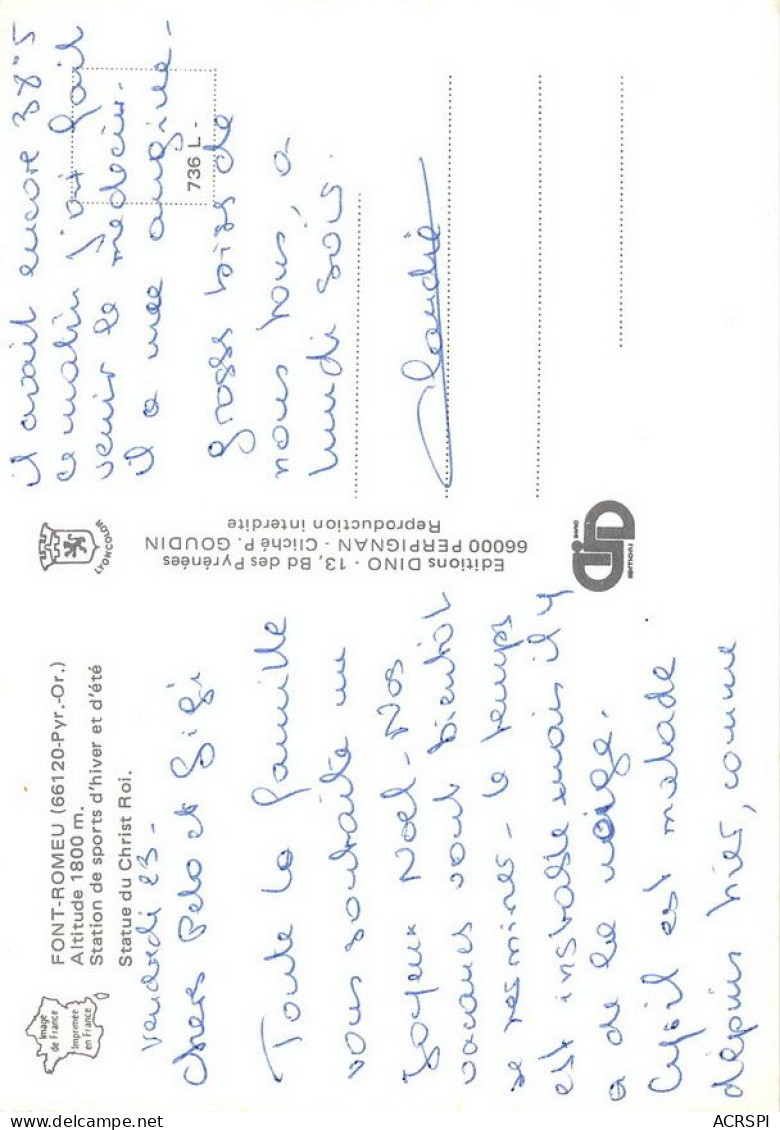 Image
de France
Imprimée
en France
FONT-ROMEU (66120-Pyr.-Or.)
Altitude 1800 m.
Station de sports d'hiver et d'été
Statue du Christ Roi.
Vendredi 23 -
Chers Pelo et Gigi
Toute la famille
vous souhaite un
Joyeux Noël - Nos
vacances vont bientôt
se terminer - le temps
est instable mais il y
a de la neige.
est malade
depuis hier, comme
LYONCOLOR
Editions DINO - 13, Bd des Pyrénées
66000 PERPIGNAN - Cliché P. GOUDIN
Reproduction interdite
DINO
EDITIONS
il avait encore 38°5
ce matin j'ai fait
venir le médecin.
il a une angine -
736 L -
Grosses bises de
nous tous, a
lundi soir.
Claudie
ACRSPI